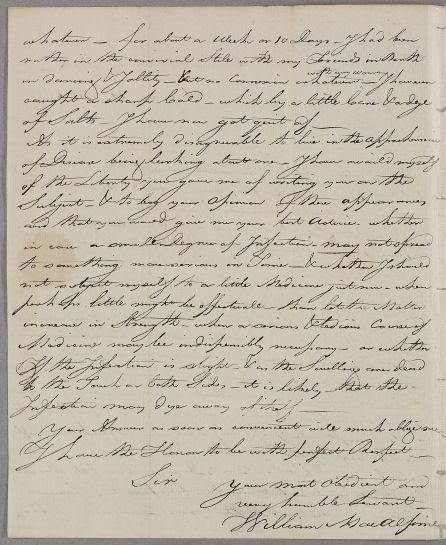 whatever – for about a Week or 10 Days – I had been
rather in the convivial Stile with my Friends in Perth
in dancing & Jollity – but no Connexion whatever with Women – I however
caught a sharp Cold – which by a little Care & a dose
of Salts – I have now got quit of –
As it is extremely disagreeable to live in the apprehension
of a Disease being lurking about one – I have availd myself
of the Liberty you gave me of writing you on the
Subject – & to beg your Opinion of these appearances
and that you would give me your best Advice whether
in case a smaller degree of Infection may not spread
to something more serious in Time – & whether I should
not subject myself to a little Medicine just now – when
perhaps little might be effectuall – than let the Matter
increase in Strength – when a serious & tedious Course of
Medicine may be indispensibly necessary – or whether
If the Infection is slight – & as the Swellings are dead
to the Touch on both Sides – it is likely that the
Infection may dye away of itself –
Your Answer as soon as convenient will much oblige me
I have the Honor to be with perfect Respect –
Sir
Your most Obedient and
very humble Servant –
William MacAlpine